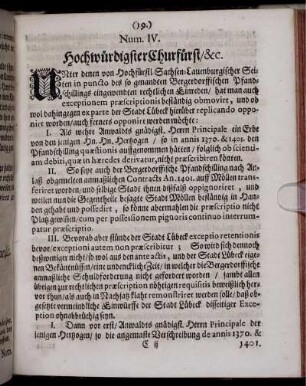 (19.)
Num. IV.
Hochwürdigster Churfürst/ &c.
Unter denen von Hochfürstl. Sachsen-Lauenburgischer Seiten
in puncto des so genandten Bergerdorffischen Pfandschillings
eingewendten rechtlichen Einreden/ hat man auch
exceptionem præscriptionis beständig obmovirt, und ob
wol dahingegen ex parte der Stadt Lübeck hierüber replicando opponiret
worden/ auch ferners opponirt werden möchte:
I. Als wehre Anwaldts gnädigst. Herrn Principale ein Erbe
von den jenigen Hn. Hn. Hertzogen / so in annis 1370. & 1401. den
Pfandschilling quæstionis auffgenommen hätten / folglich ob scientiam
debiti, quæ in hæredes derivatur, nicht præscribiren könten.
II. So seye auch der Bergerdorffische Pfandschilling auch Anlaß
obgemelten anmaßlichen Contracts An. 1401. auff Möllen transferiret
worden/ und selbige Stadt ihnen dißfalß oppignoriret / und
weilen nun die Gegentheile besagte Stadt Möllen beständig in Handen
gehabt und possedirt, so könte abermahlen die præscriptio nicht
Platz gewinnen/ cum per possessionem pignoris continuo interrumpatur
præscriptio.
III. Bevorab aber stünde der Stadt Lübeck exceptio retentionis
bevor/ exceptioni autem non præscribitur; So wird sich dennoch
deßweniger nicht/ so wol aus den ante actis, und der Stadt Lübeck eigenen
Bekäntnüssen/ eine undenckliche Zeit/ in welcher die Bergerdorffische
anmaßliche Schuldforderung nicht gefordert worden / sambt allen
übrigen zur rechtlichen præscription nöhtigen requisitis beweglich hervor
thun/ als auch in Nachsatz klahr remonstriret werden solle/ daß obgesetzte
vermeindliche Einwürffe der Stadt Lübeck disseitiger Exception
ohnabbrüchig seyn.
I. Dann vor erst/ Anwaldts gnädigst. Herrn Principale der
jenigen Hertzogen/ so die angemaste Verschreibung de annis 1370. &
C ij
1401.